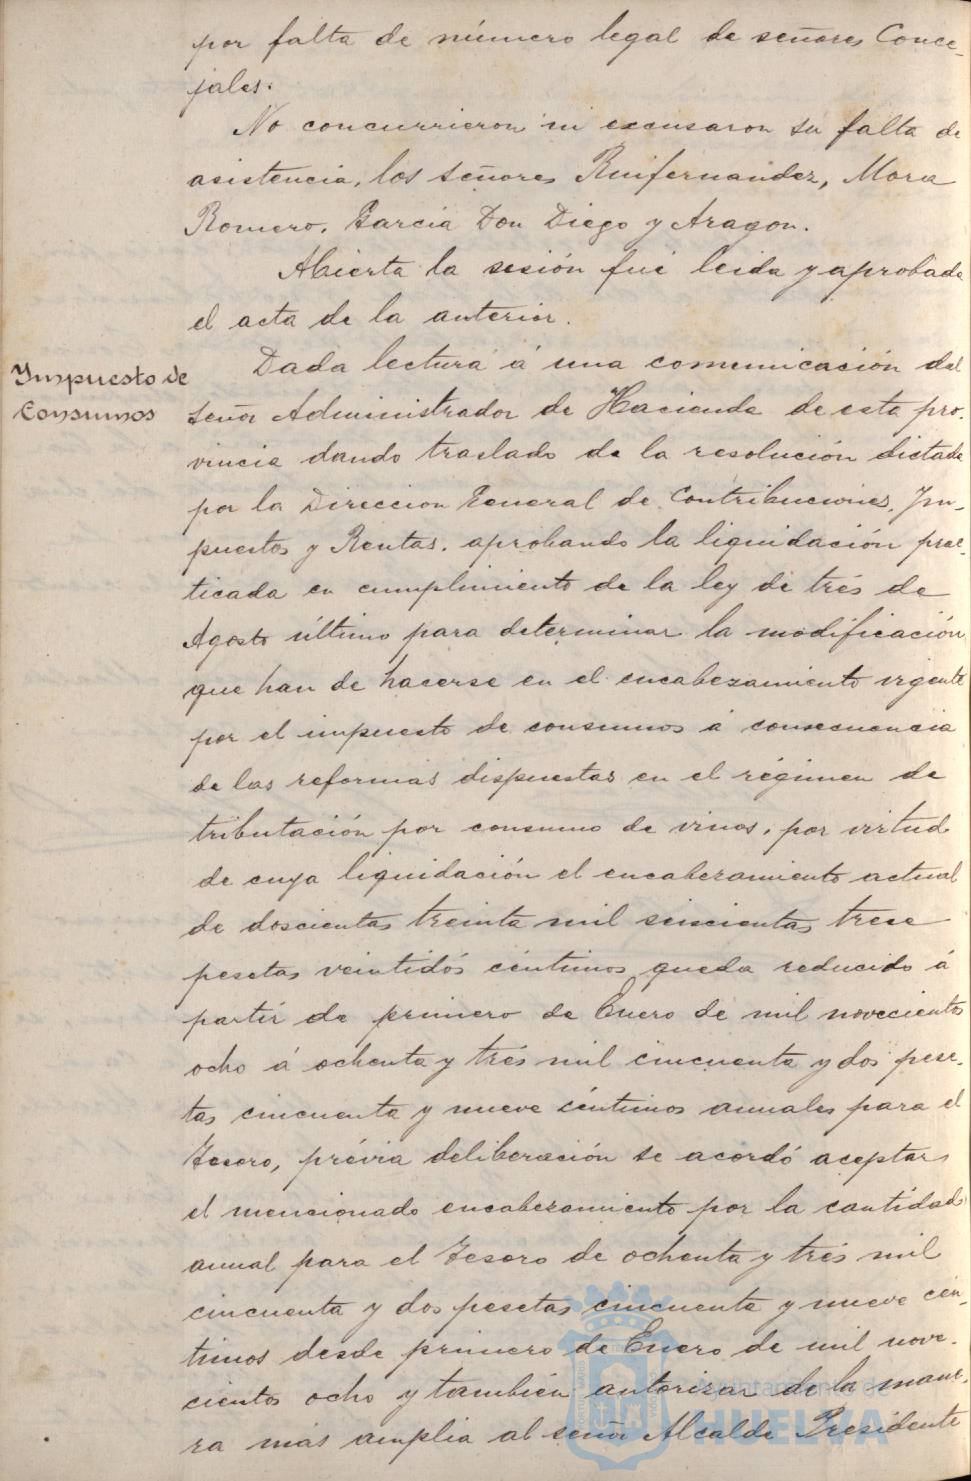 por falta de número legal de señores Conce-
jales.
No concurrieron ni excusaron su falta de
asistencia, los señores Ruifernandez, Mora
Romero, Garcia Don Diego y Aragon.
Abierta la sesión fué leida y aprobada
el acta de la anterior.
Impuesto de
Consumos
Dada lectura á una comunicación del
señor Administrador de Hacienda de esta pro-
vincia dando traslado de la resolución dictada
por la Direccion General de Contribuciones, Im-
puestos y Rentas, aprobando la liquidación prac-
ticada en cumplimiento de la ley de trés de
Agosto último para determinar la modificación
que han de hacerse en el encabezamiento vigente
por el impuesto de consumos á consecuencia
de las reformas dispuestas en el régimen de
tributación por consumo de vinos, por virtud
de cuya liquidación el encabezamiento actual
de doscientas treinta mil seiscientas trece
pesetas veintidós céntimos queda reducido á
partir de primero de Enero de mil novecientos
ocho á ochenta y trés mil cincuenta y dos pese-
tas cincuenta y nueve céntimos anuales para el
Tesoro, prévia deliberación se acordó aceptar
el mencionado encabezamiento por la cantidad
anual para el Tesoro de ochenta y trés mil
cincuenta y dos pesetas cincuenta y nueve cén-
timos desde primero de Enero de mil nove-
cientos ocho y también autorizar de la mane-
ra más amplia al señor Alcalde Presidente
Ayuntamiento de
HUELVA